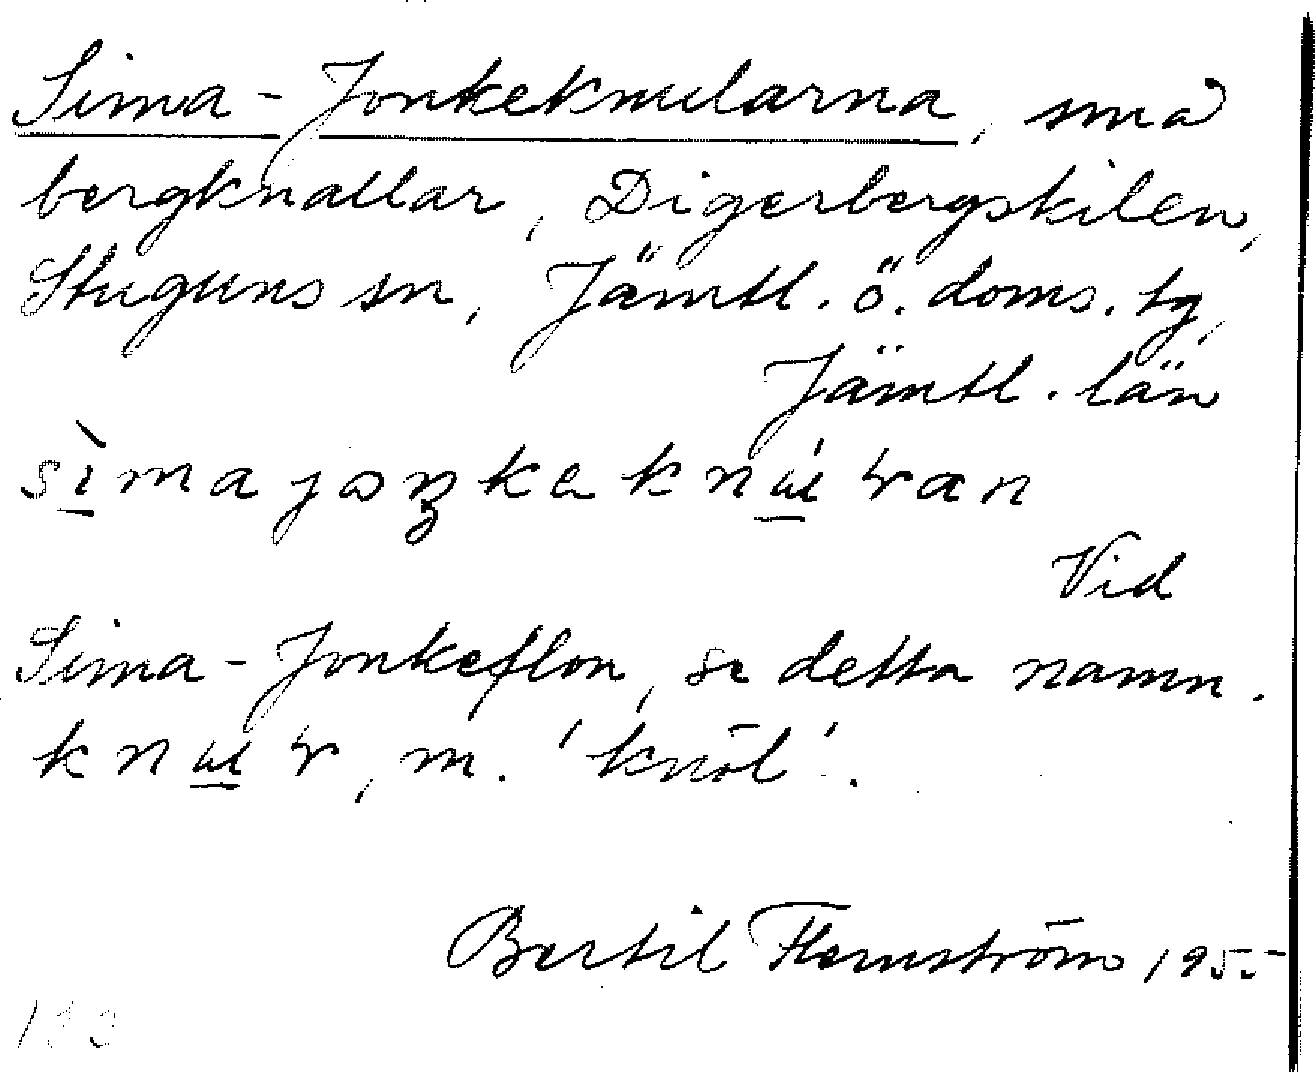 Sima-Jonkeknularna, små
bergknallar, Digerbergskilen,
Stuguns sn, Jämtl. ö. doms. tg,
Jämtl. län
Vid
Sima-Jonkeflon, se detta namn.
m. 'knöl'.
Bertil Flemström 1955